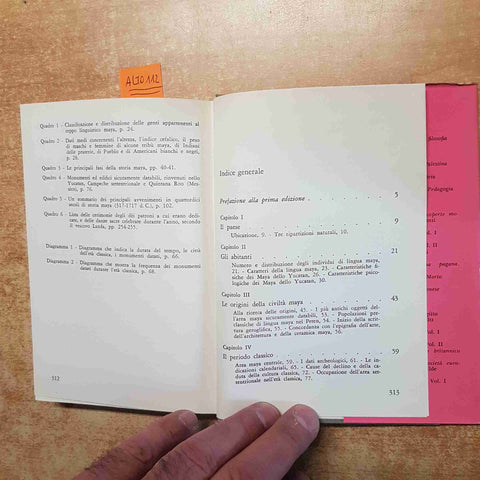 ALJO 112
Quadro 1 - Classificazione e distribuzione delle genti appartenenti al
ceppo linguistico maya, p. 24.
Quadro 2 - Dati medi concernenti l'altezza, l'indice cefalico, il peso
di maschi e femmine di alcune tribù maya, di Indiani
delle praterie, di Pueblo e di Americani bianchi e negri,
p. 26.
Quadro 3 - Le principali fasi della storia maya, pp. 40-41.
Quadro 4 - Monumenti ed edifici sicuramente databili, rinvenuti nello
Yucatan, Campeche settentrionale e Quintana Roo (Mes-
sico), p. 76.
Quadro 5 - Un sommario dei principali avvenimenti in quattordici
secoli di storia maya (317-1717 d. C.), p. 102.
Quadro 6 - Lista delle cerimonie degli dèi patroni a cui erano dedi-
cate, e delle danze sacre celebrate durante l'anno, secondo
il vescovo Landa, pp. 254-255.
Diagramma 1 - Diagramma che indica la durata del tempo, le città
dell'età classica, i monumenti datati, p. 66.
Diagramma 2 - Diagramma che mostra la frequenza dei monumenti
datati durante l'età classica, p. 68.
312
Indice generale
Prefazione alla prima edizione . 5
Capitolo I
Il paese . 9
Ubicazione, 9. - Tre ripartizioni naturali, 10.
Capitolo II
Gli abitanti . 21
Numero e distribuzione degli individui di lingua maya,
21. - Caratteri della lingua maya, 23. - Caratteristiche
fisiche dei Maya dello Yucatan, 25. - Caratteristiche psico-
logiche dei Maya dello Yucatan, 30.
Capitolo III
Le origini della civiltà maya . 43
Alla ricerca delle origini, 43. - I più antichi oggetti del-
l'area maya sicuramente databili, 53. - Popolazioni pre-
classiche di lingua maya nel Peten, 54. - Inizio della scrit-
tura geroglifica, 55. - Concordanza con l'epigrafia dell'arte,
dell'architettura e della ceramica maya, 56.
Capitolo IV
Il periodo classico . 59
Area maya centrale, 59. - I dati archeologici, 61. - Le in-
dicazioni calendariali, 65. - Cause del declino e della ca-
duta della cultura classica, 72. - Occupazione dell'area set-
tentrionale nell'età classica, 77.
313
filosofia
Palestina
Pedagogia
pagana.
Vol. I
Vol. II
britannico
Vol. I